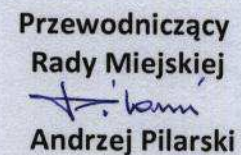 Przewodniczący
Rady Miejskiej
Andrzej Pilarski